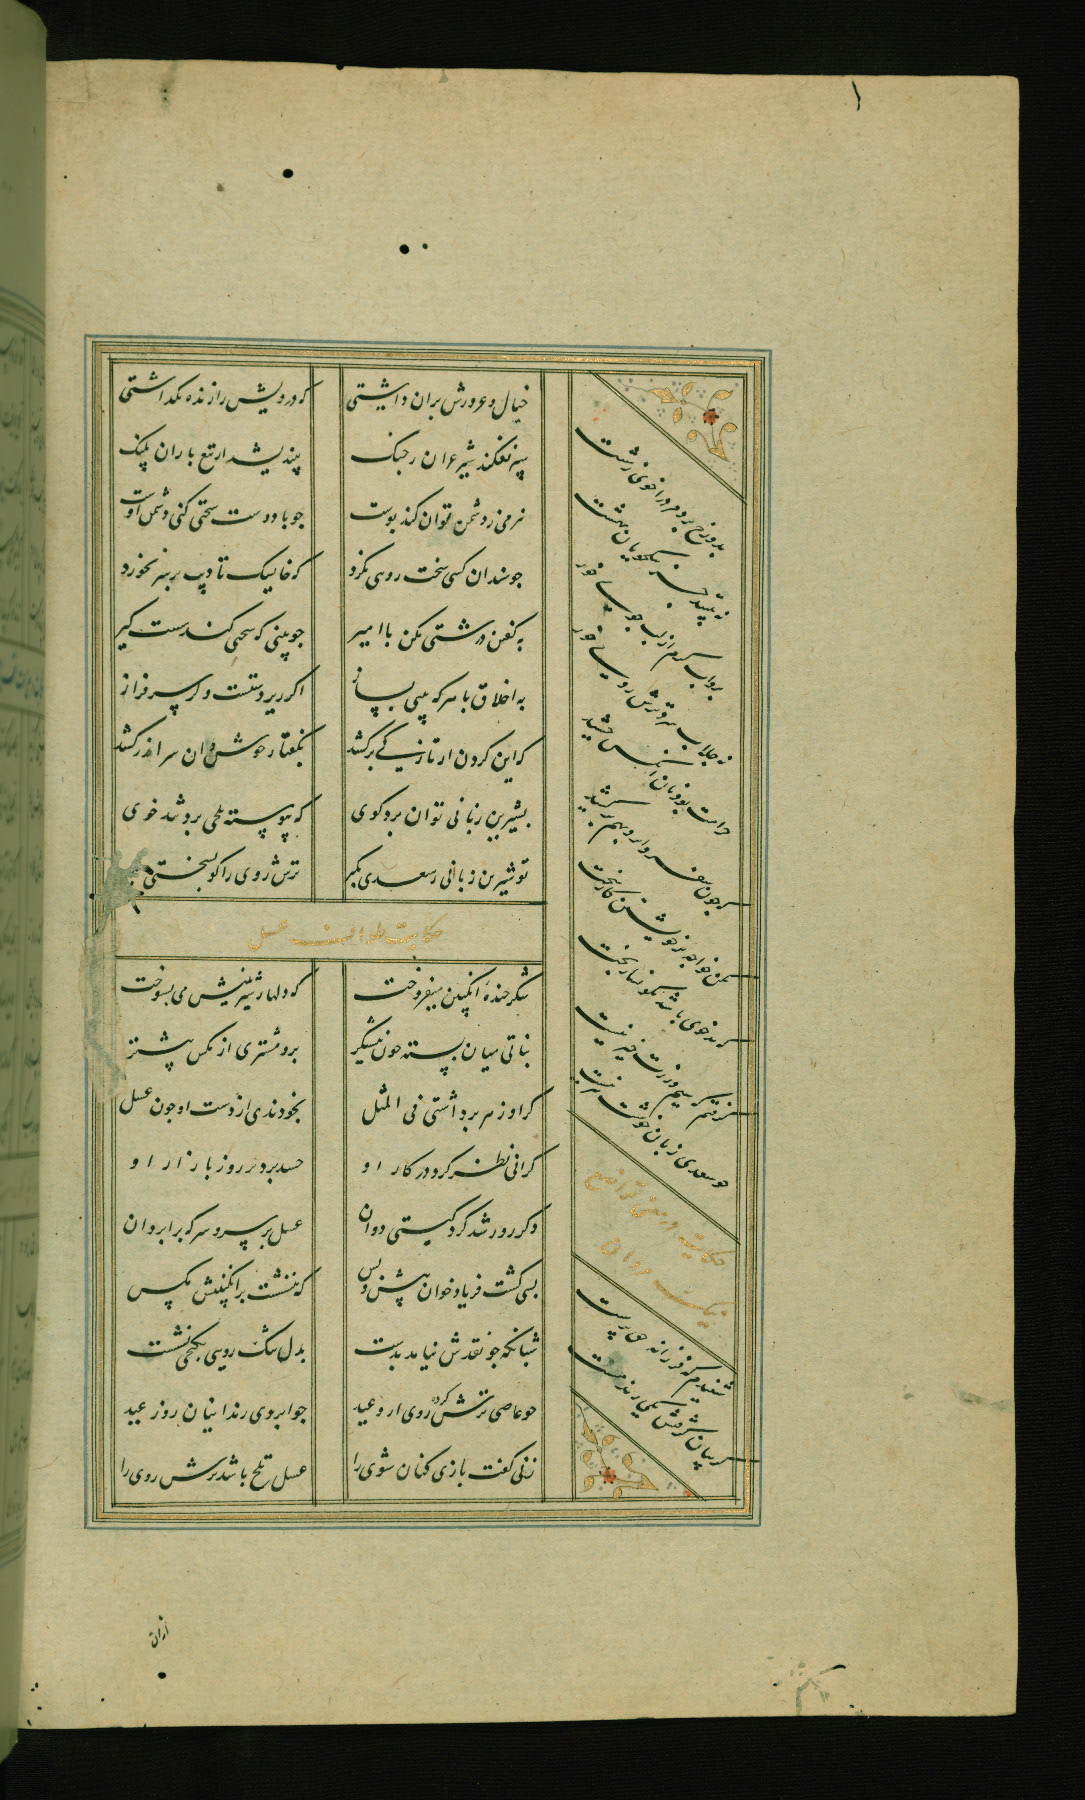 خیال و غرورش بران داشتی
که درویش را زنده نگداشتی
سپر نفکند شیر غران ز جنگ
نیندیشد از تیغ باران پلنگ
بنرمی ز دشمن توان کند پوست
چو با دوست سختی کنی دشمن اوست
چو سندان کسی سخت رویی نکرد
که خایسک تادیب بر سر نخورد
بگفتن درشتی مکن با امیر
چو بینی که سختی کند سست گیر
به اخلاق با هر که بینی بساز
اگر زیر دستست و گر سرفراز
که این گردن از نازکی برکشد
بگفتار خوش وان سر اندر کشد
بشیرین زبانی توان برد گوی
که پیوسته تلخی برد تند خوی
تو شیرین زبانی ز سعدی بگیر
ترش روی را گو بسختی
حکایت
عسل
شکر خنده انگبین میفروخت
که دلها ز شیرینیش می بسوخت
نباتی میان بسته چون نیشکر
برو مشتری از مگس بیشتر
گر او زهر برداشتی فی المثل
بخوردندی از دست او چون عسل
گرانی نظر کرد در کار او
حسد برد بر روز بازار او
دگر روز شد گرد گیتی دوان
عسل بر سر و سرکه بر ابروان
بسی گشت فریاد خوان پیش و پس
که ننشست بر انگبینش مگس
شبانگه چو نقدش نیامد بدست
بدل تنگ رویی بکنجی نشست
چو عاصی ترش کرده روی از وعید
چو ابروی زندانیان روز عید
زنی گفت بازی کنان شوی را
عسل تلخ باشد ترش روی را
بدوزخ برد مرد را خوی زشت
نیکخویان بهشت
برو آب گرم از لب جوی خور
نه جلاب سرد ترش روی خور
حرامت بود نان آنکس چشید
که چون سفره ابرو بهم برکشید
مکن خواجه بر خویشتن کار سخت
که بدخوی باشد نگونسار بخت
گرفتم که سیم و زرت چیز نیست
چو سعدی زبان خوشت نیز نیست
حکایت در معنی تواضع
نیک مردان
شنیدم که فرزانه حق پرست
گریبان گرفتش یکی رند مست
ازان